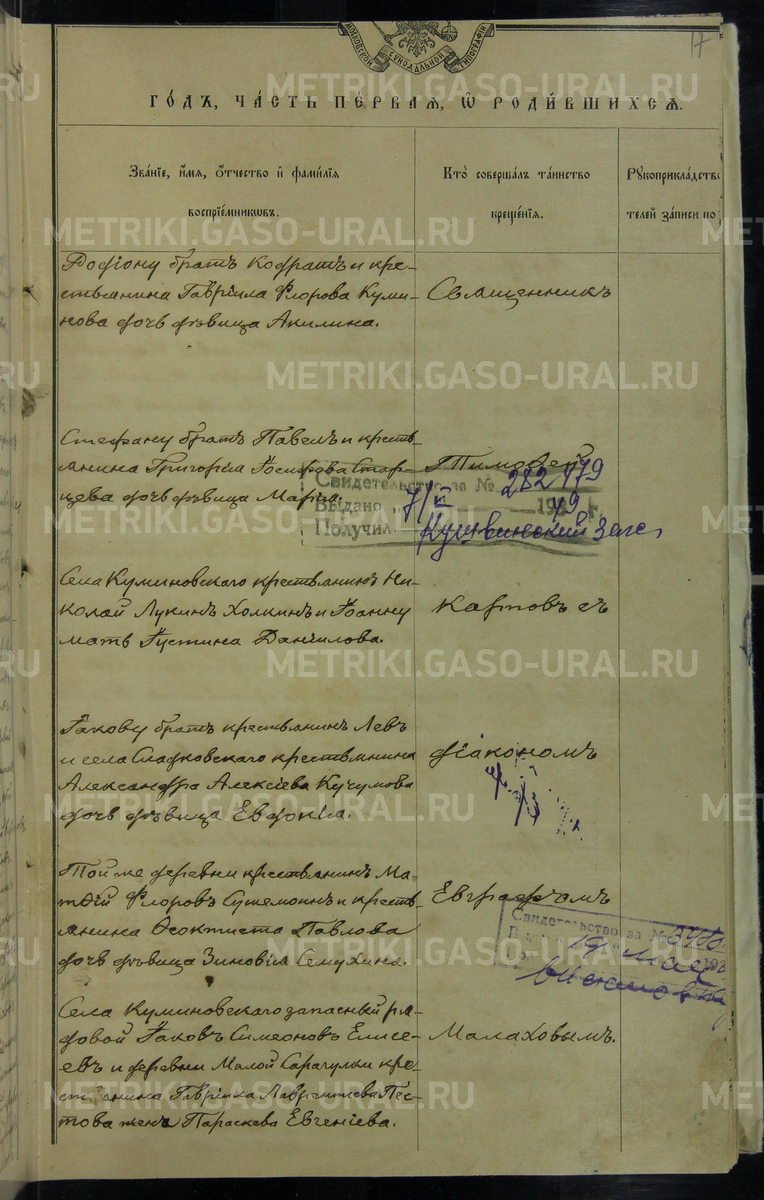 МОСКОВСКОЙ СѴНОДАЛЬНОЙ ТИПОГРАФІИ
17
ГОДЪ, ЧАСТЬ ПЕРВАЯ, Ѡ РОДИВШИХСЯ.
Званіе, имя, отчество и фамилія
воспріемниковъ.
Кто совершалъ таинство
крещенія.
Рукоприкладство
телей записи по
Родіону братъ Кодратъ и кре-
стьянина Гавріила Флорова Куми-
нова дочь дѣвица Акилина.
Священникъ
Стефану братъ Павелъ и кресть-
янина Григорія Іосифова Стар-
цева дочь дѣвица Марія.
Тимоѳей
Свидетельство за № 282 179
Выдано 7/II 1949 г.
Получил Кушвинский Загс
Села Куминовскаго крестьянинъ Ни-
колай Лукинъ Холкинъ и Іоанну
мать Іустина Даніилова.
Карповъ съ
Іакову братъ крестьянинъ Левъ
и села Сладковскаго крестьянина
Александра Алексіева Кучумова
дочь дѣвица Евдокіа.
діакономъ
Той же деревни крестьянинъ Ма-
тѳій Флоровъ и кресть-
янина Ѳеоктиста Павлова
дочь дѣвица Зиновія Семухина.
Евграфомъ
Свидетельство за №
19 мая
Села Куминовскаго запасный ря-
довой Іаковъ Симеоновъ Елисе-
евъ и деревни Малой Сарагулки кре-
стьянина Гавріила Лаврентіева Пес-
това жена Параскева Евгеніева.
Малаховымъ.
METRIKI.GASO-URAL.RU